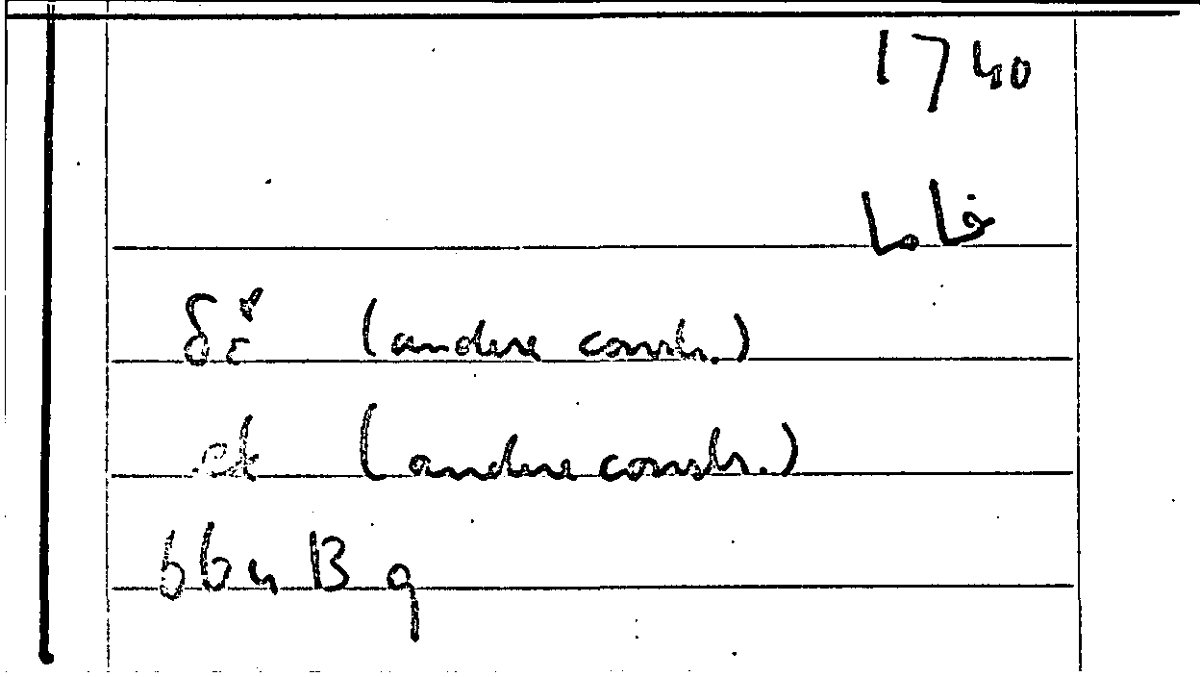 1740
δὲ (andere constr.)
et (andere constr.)
664 B 9